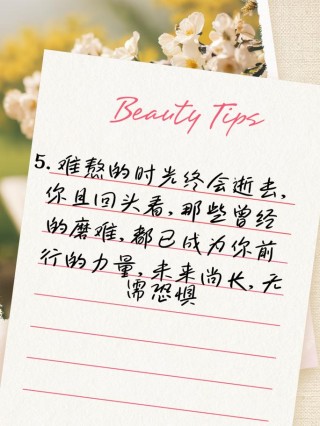 Beauty Tips
5. 难熬的时光终会逝去,
你且回头看,那些曾经
的磨难,都已成为你前
行的力量,未来尚长,无
需恐惧